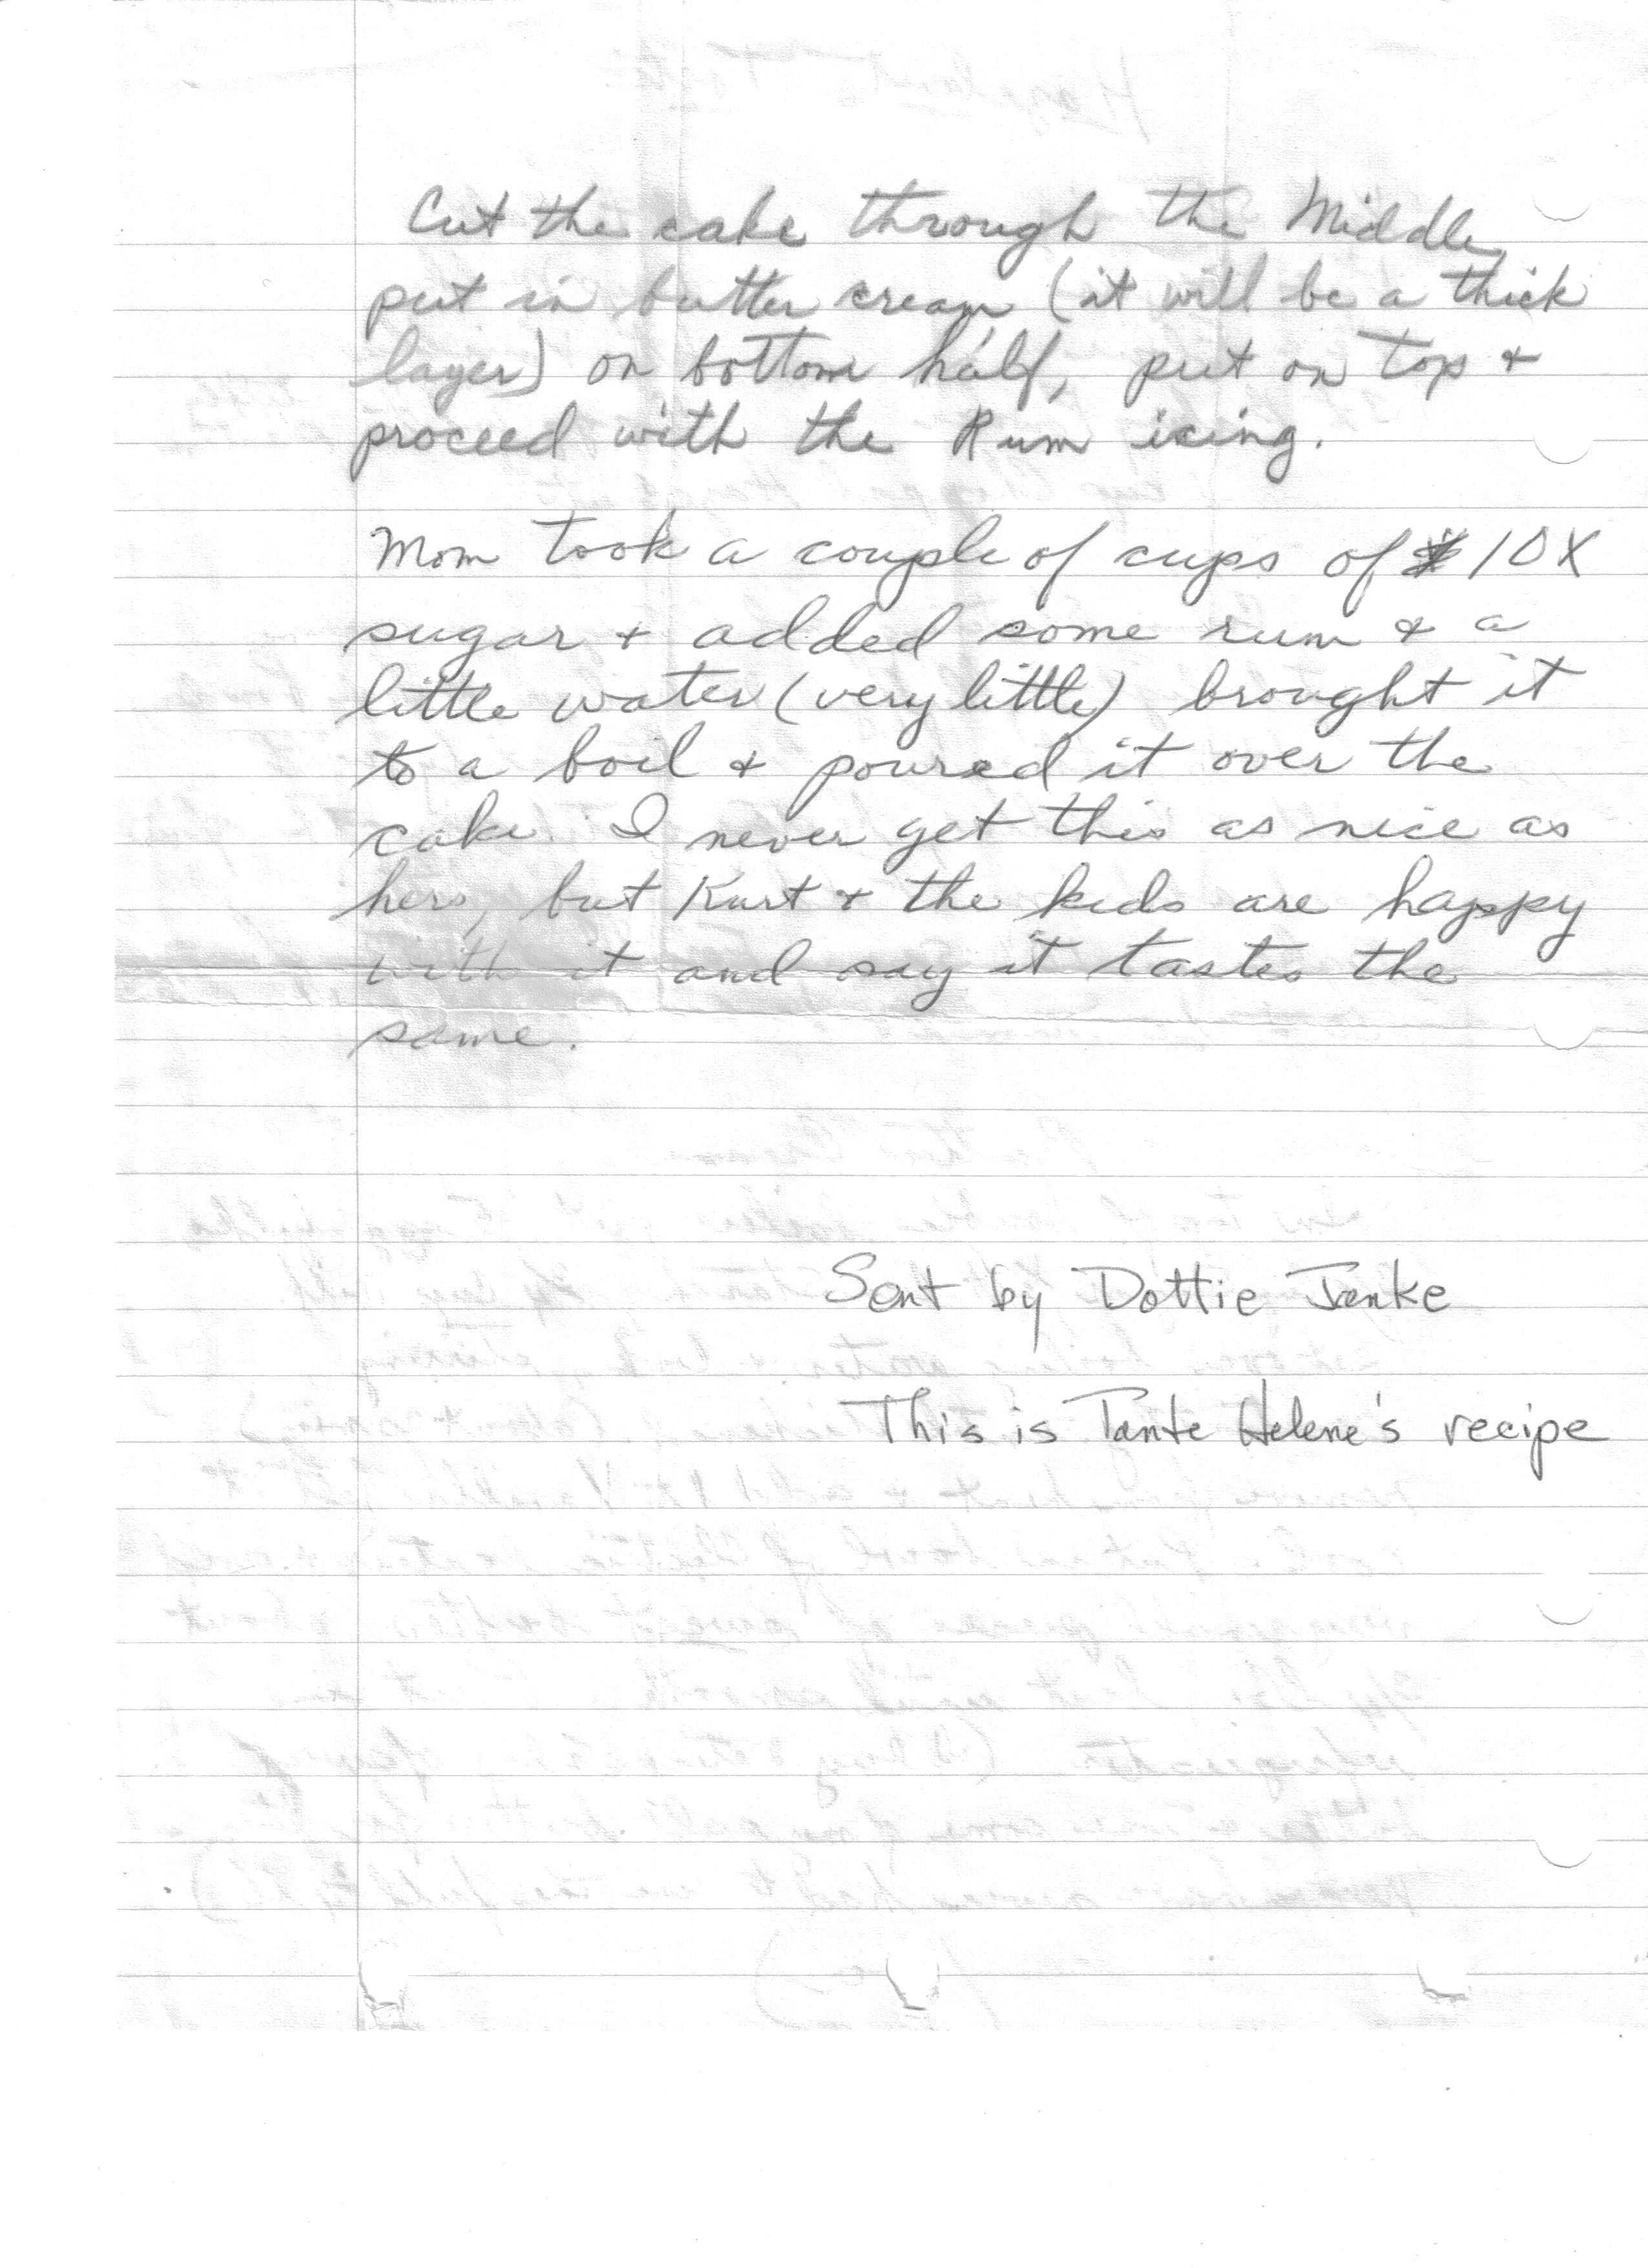 Cut the cake through the Middle
put in butter cream (it will be a thick
layer) on bottom half, put on top +
proceed with the Rum icing.
Mom took a couple of cups of 10X
sugar + added some rum & a
little water (very little) brought it
to a boil & poured it over the
cake. I never get this as nice as
hers, but Kurt & the kids are happy
with it and say it tastes the
same.
Sent by Dottie Janke
This is Tante Helene's recipe